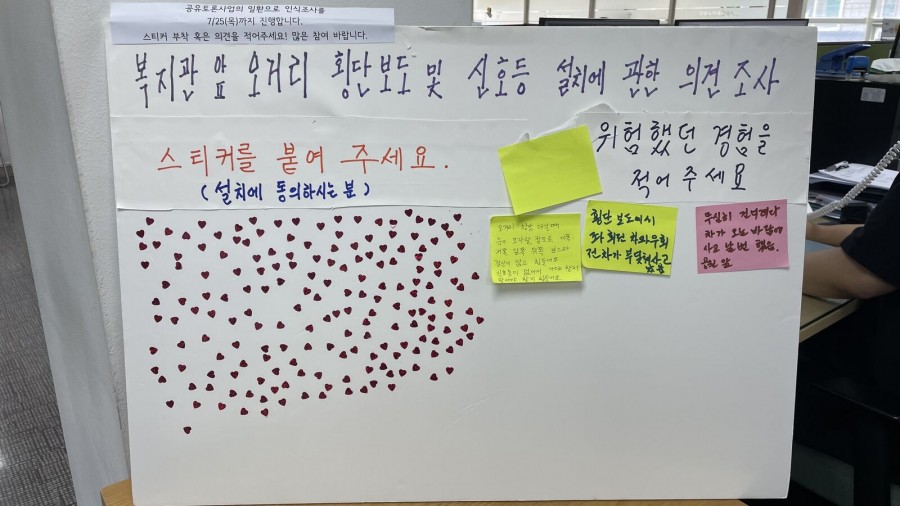 공유토론사업의 일환으로 인식조사를
7/25(목)까지 진행합니다.
스티커 부착 혹은 의견을 적어주세요! 많은 참여 바랍니다.
복지관 앞 오거리 횡단보도 및 신호등 설치에 관한 의견 조사
스티커를 붙여 주세요.
(설치에 동의하시는 분)
위험했던 경험을
적어주세요
횡단 보도이시
좌회전 차와 우회
전 차가 부딪혀 사고
무심히 건너려다
차가 오는 바람에
사고 날 뻔 했음.